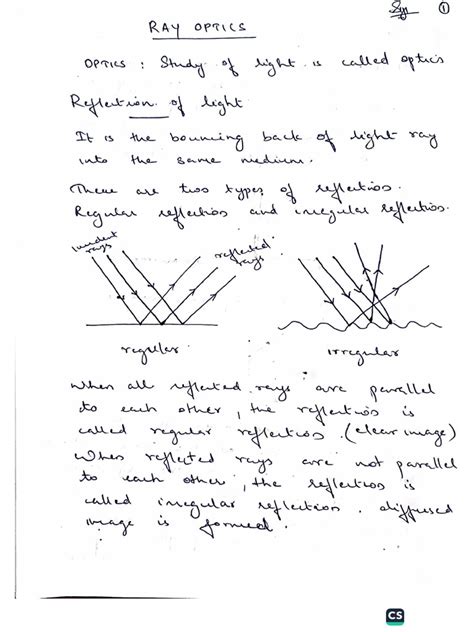 ①
RAY OPTICS
OPTICS : Study of light is called optics
Reflection of light
It is the bouncing back of light ray
into the same medium.
There are two types of reflection.
Regular reflection and irregular reflection.
incident rays
reflected rays
regular
irregular
When all reflected rays are parallel
to each other, the reflection is
called regular reflection. (clear image)
When reflected rays are not parallel
to each other, the reflection is
called irregular reflection. diffused
image is formed.
CS